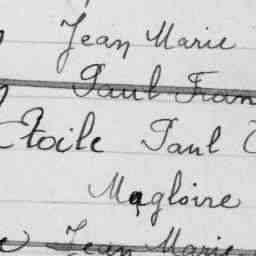 Jean Marie
Paul Fran
Etoile Paul
Magloire
Jean Marie